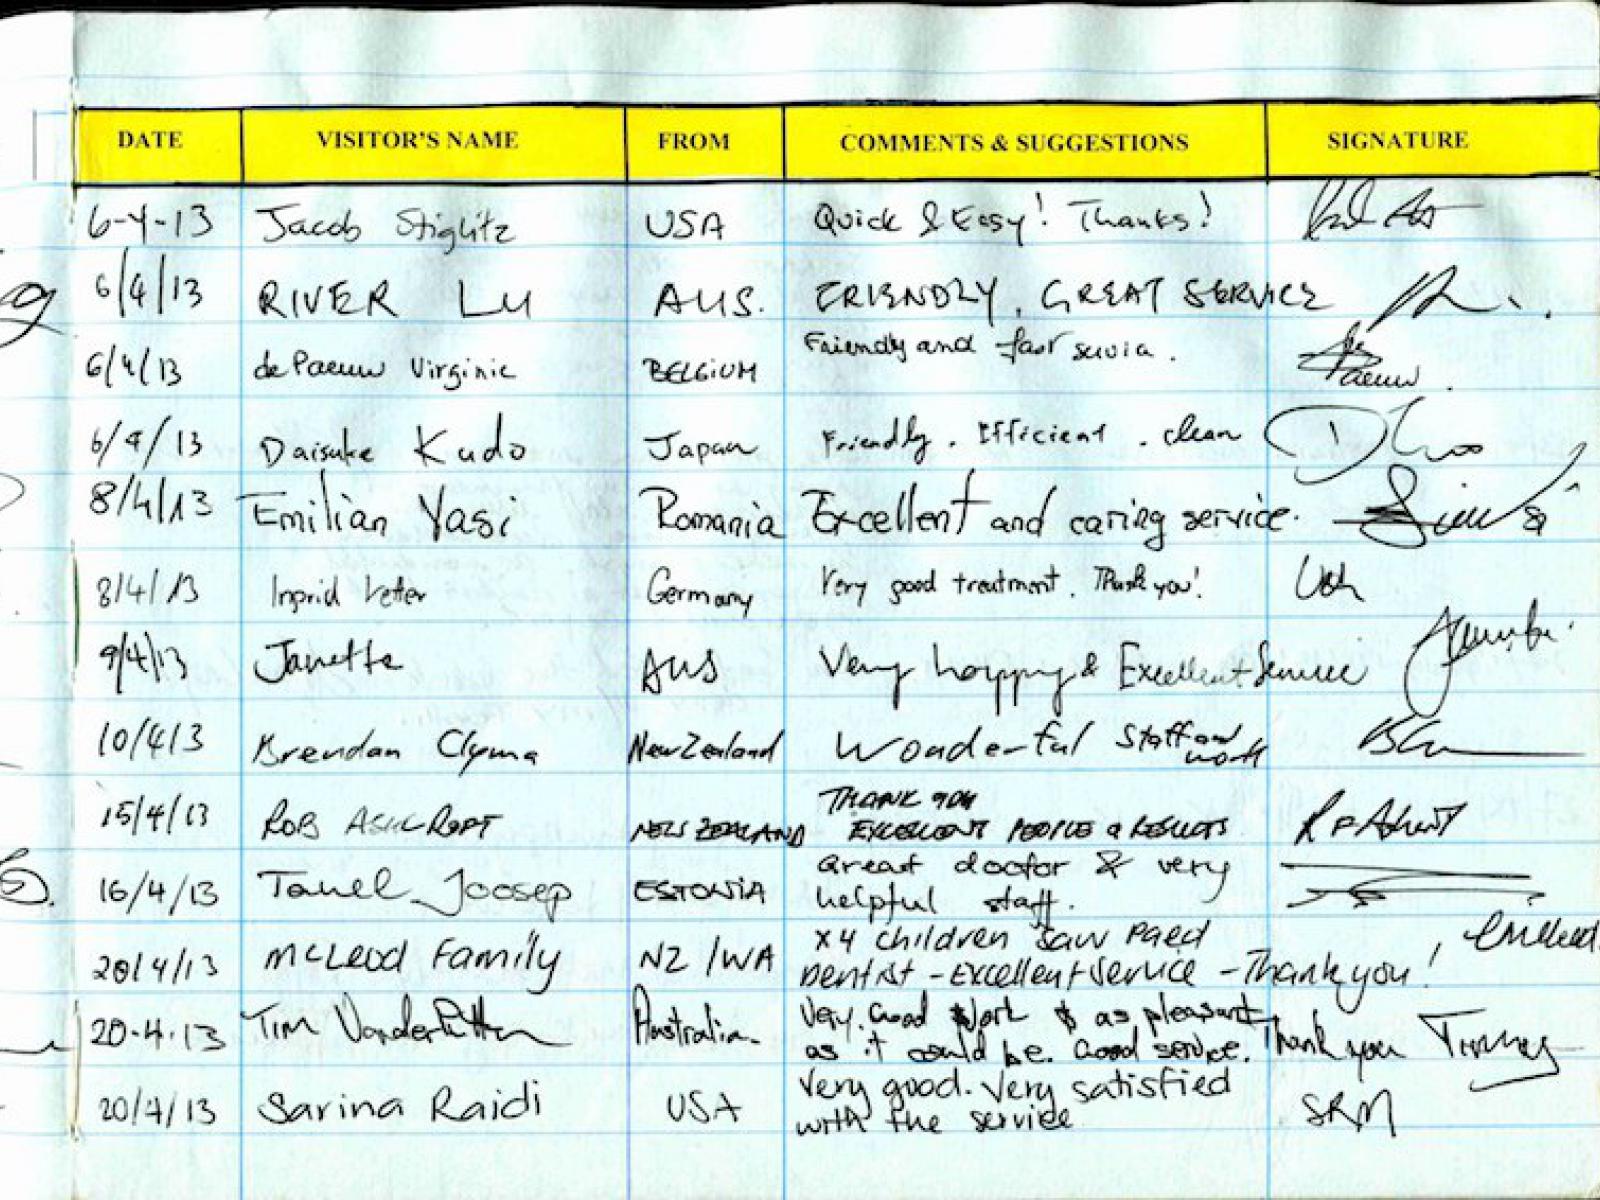 DATE VISITOR'S NAME FROM COMMENTS & SUGGESTIONS SIGNATURE
6-4-13 Jacob Stiglitz USA Quick & Easy! Thanks!
6/4/13 RIVER LU AUS. FRIENDLY, GREAT SERVICE
6/4/13 de Paeuw Virginie BELGIUM Friendly and fast servia. Paeuw.
6/4/13 Daisuke Kudo Japan Friendly. Efficient. clean
8/4/13 Emilian Yasi Romania Excellent and caring service.
8/4/13 Ingrid Vetter Germany Very good treatment. Thank you!
9/4/13 Janette AUS Very happy & Excellent Service
10/4/13 Brendan Clyma New Zealand Wonderful Staff and work
15/4/13 ROB ASHCROFT NEW ZEALAND THANK YOU
EXCELLENT PEOPLE & RESULTS
16/4/13 Tanel Joosep ESTONIA Great doctor & very
helpful staff.
20/4/13 McLeod Family NZ/WA x4 children saw Paed
Dentist - Excellent Service - Thank you!
20-4-13 Tim VanderPutten Australia Very Good Work & as pleasant
as it could be. Good service. Thank you Timmy
20/4/13 Sarina Raidi USA Very good. Very satisfied
with the service SRM